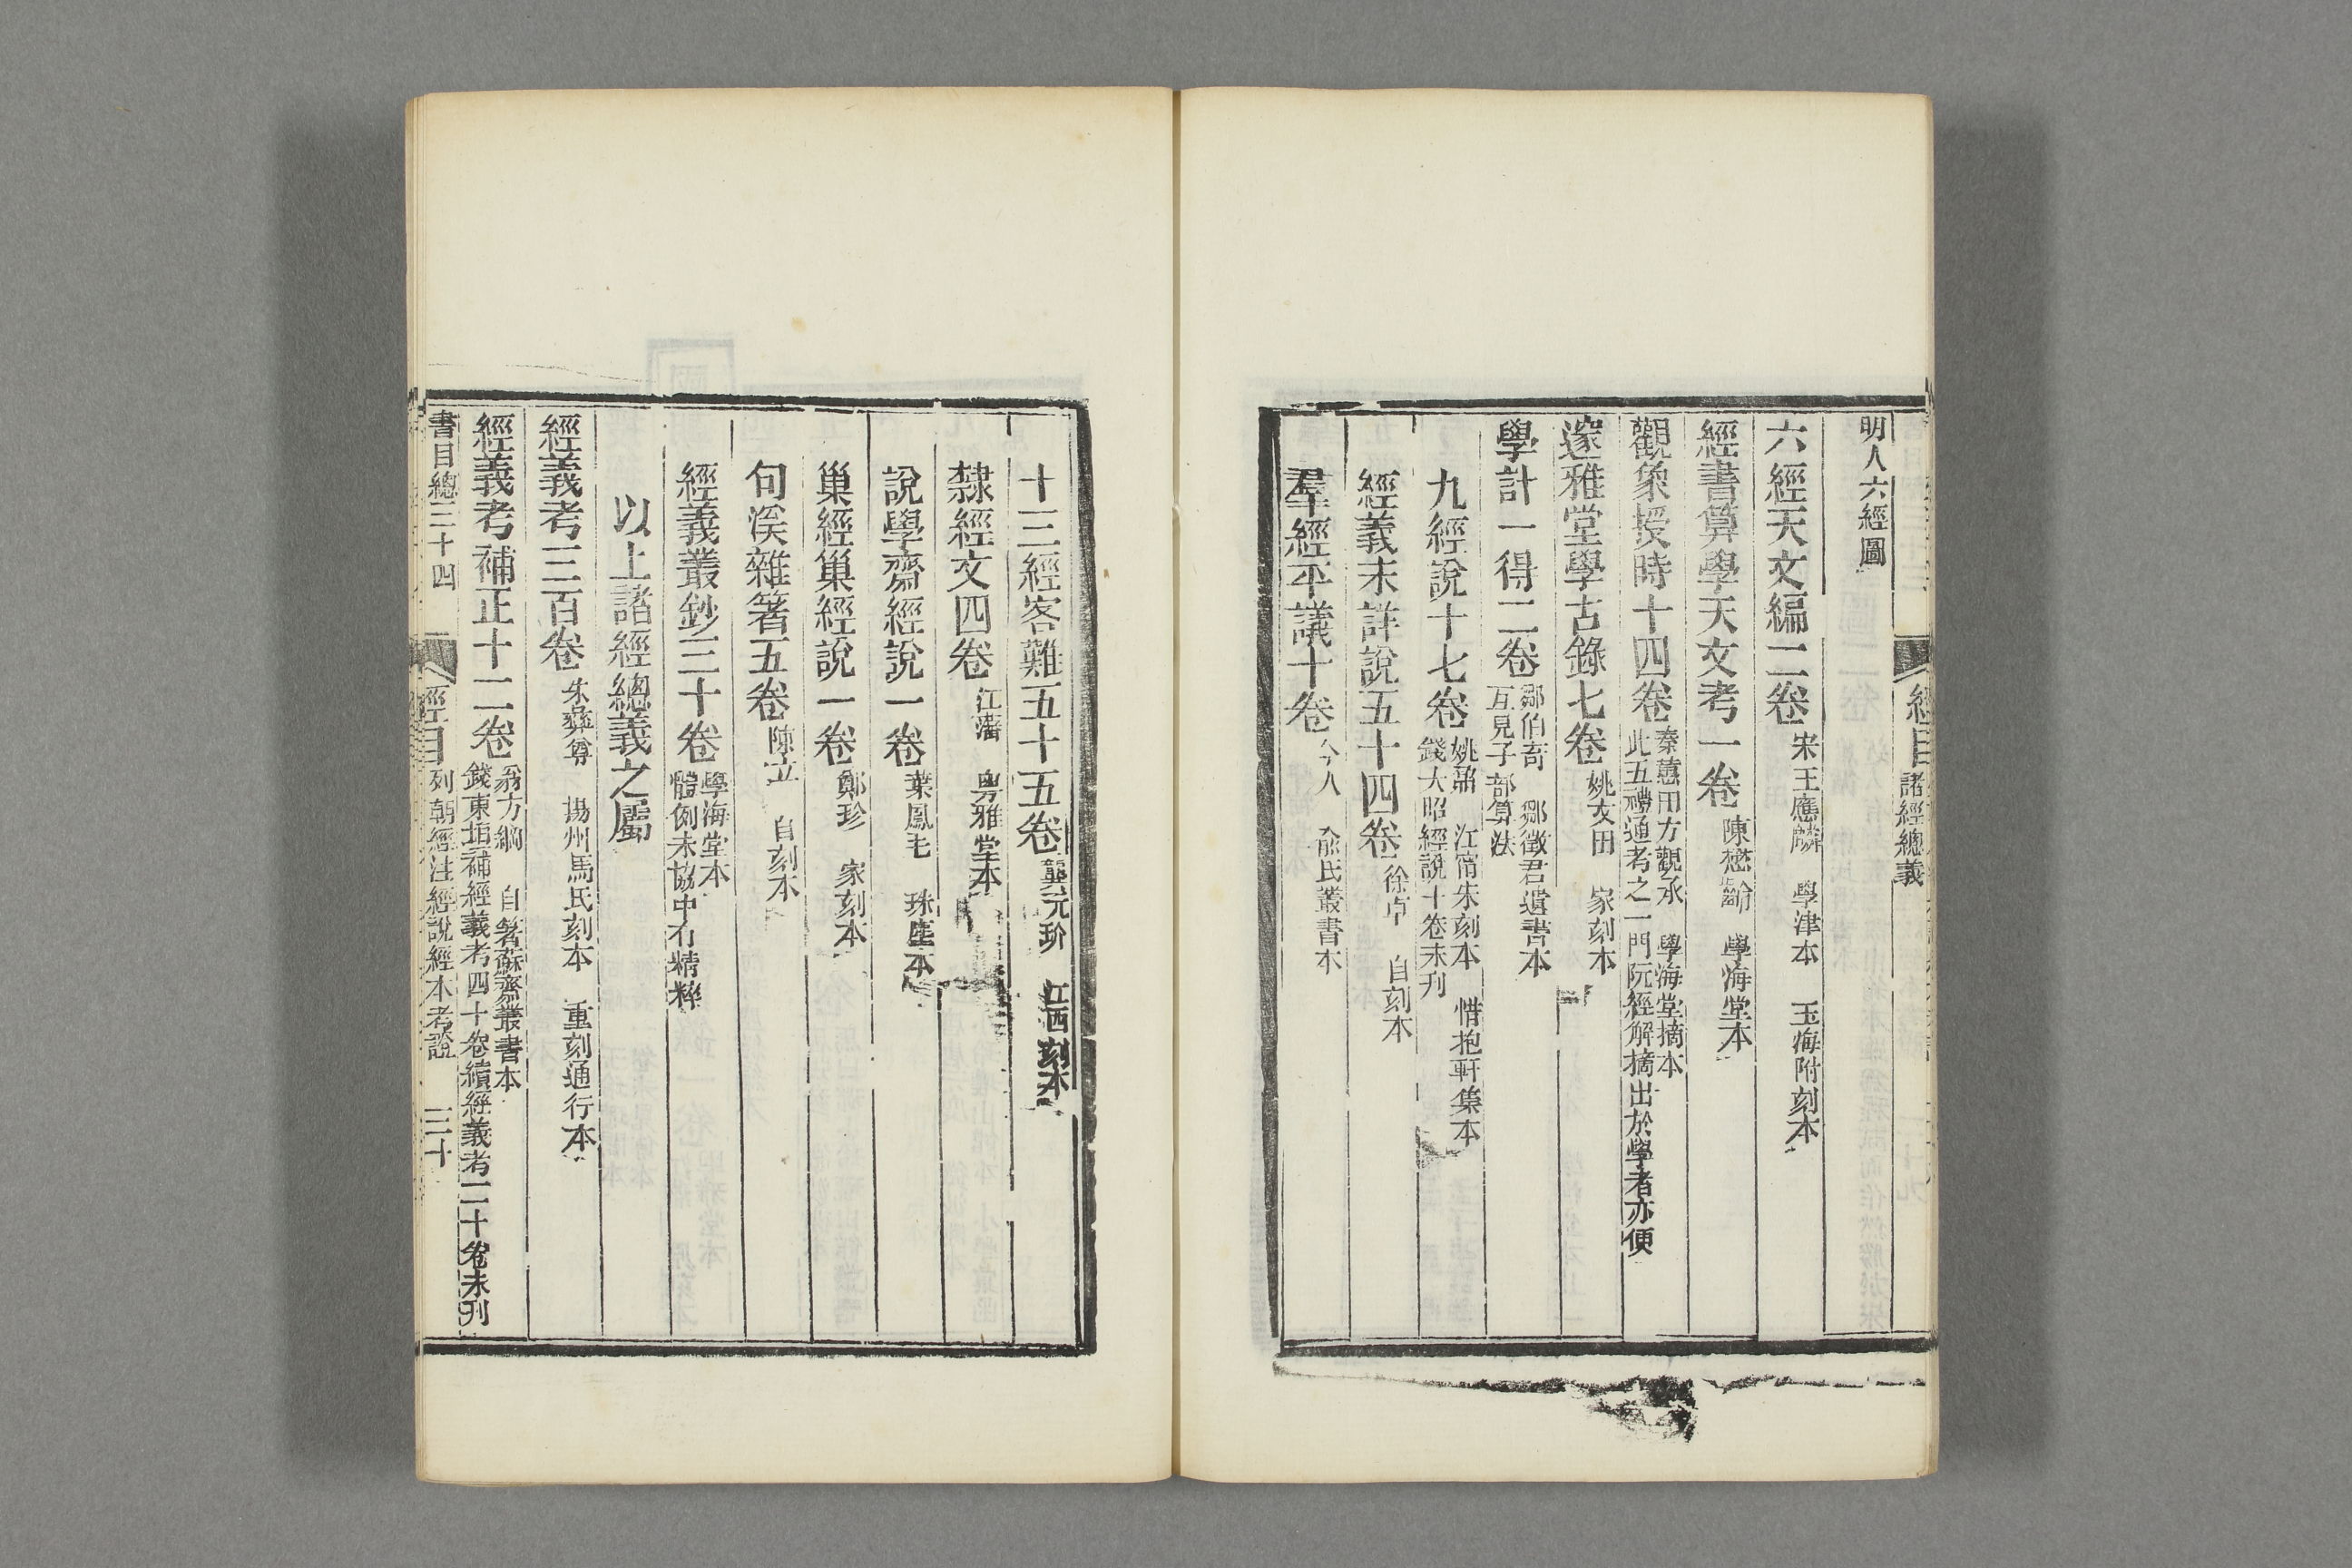 經目 諸經總義
明人六經圖
六經天文編二卷 宋王應麟 學津本 玉海附刻本
經書算學天文考一卷 陳懋齡 學海堂本
觀象授時十四卷 秦蕙田方觀承 學海堂摘本
此五禮通考之一門阮經解摘出於學者亦便
邃雅堂學古錄七卷 姚文田 家刻本
學計一得二卷 鄒伯奇 鄒徵君遺書本
互見子部算法
九經說十七卷 姚鼐 江甯朱刻本 惜抱軒集本
錢大昭經說十卷未刊
經義未詳說五十四卷 徐卓 自刻本
羣經平議十卷 今人 俞氏叢書本
十三經客難五十五卷 龔元玠 江西刻本
隸經文四卷 江藩 粵雅堂本
說學齋經說一卷 葉鳳毛 珠塵本
巢經巢經說一卷 鄭珍 家刻本
句溪雜箸五卷 陳立 自刻本
經義叢鈔三十卷 學海堂本
體例未協中有精粹
以上諸經總義之屬
經義考三百卷 朱彝尊 揚州馬氏刻本 重刻通行本
經義考補正十二卷 翁方綱 自箸蘇齋叢書本
錢東垣補經義考四十卷續經義考二十卷未刊
書目總三十四 經目 列朝經注經說經本考證 三十